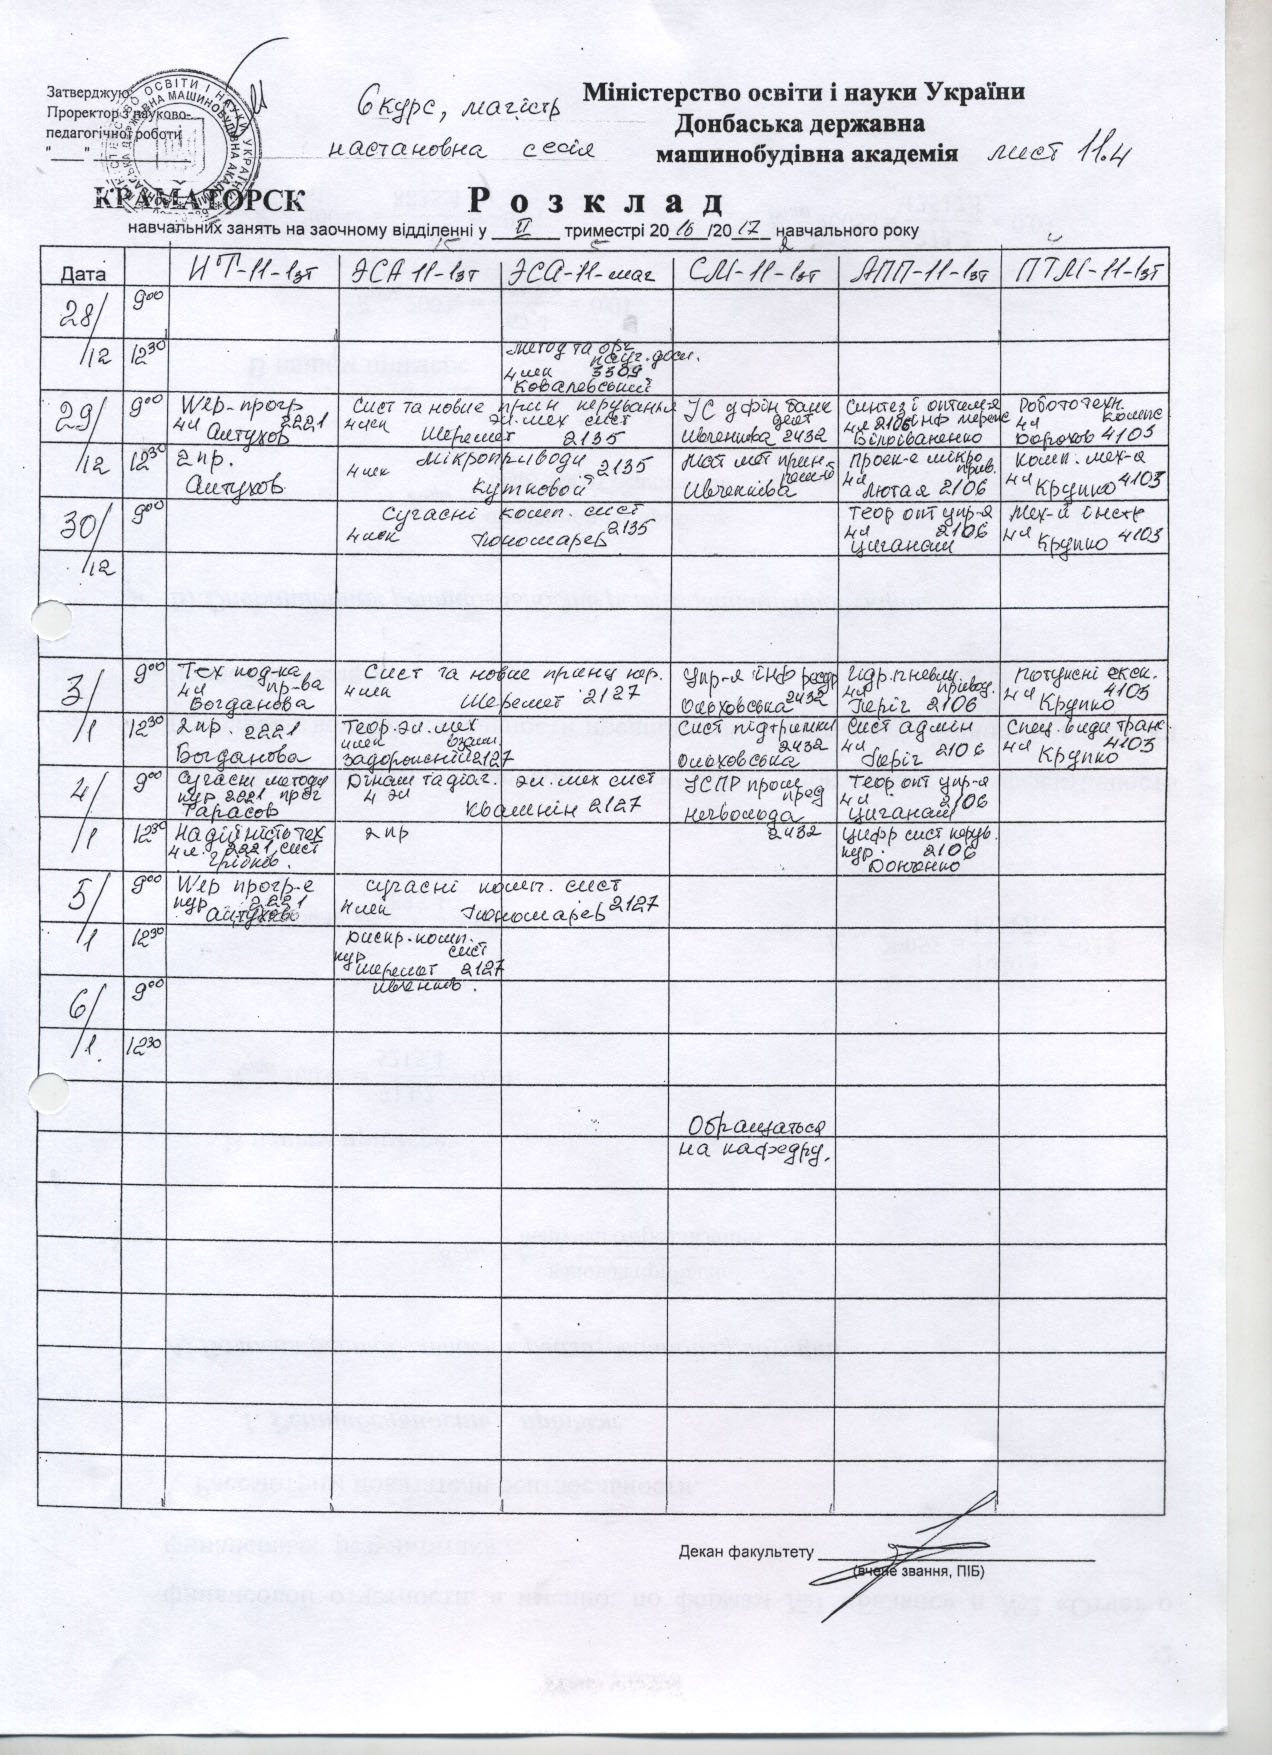 Затверджую
Проректор з науково-
педагогічної роботи
6 курс, магістр
настановна сесія
Міністерство освіти і науки України
Донбаська державна
машинобудівна академія
лист 11.4
КРАМАТОРСК
Розклад
навчальних занять на заочному відділенні у II триместрі 2016/2017 навчального року
Дата ИТ-11-1зт ЭСА 11-1зт ЭСА-11-маг СМ-11-1зт АПП-11-1зт ПТМ-11-1зт
28/12
9 00
12 30
Метод та орг
наук. досл.
4 лек 3309
Ковалевський
29/12
9 00
Web-прогр
4л 2221
Алтухов
Сист та новие прин керування
4лек эл.мех сист
Шеремет 2135
ІС у фін банк
деят
Ивченкова 2432
Синтез і оптим-я
4л 2106 інф мереж
Білоіваненко
Робототехн.
4л компл
Дорохов 4103
12 30
2 пр.
Алтухов
Мікроприводи
4лек 2135
Кутковой
Мат мет прин.
решен
Ивченкова
Проек-е мікро
прив.
4л
Лютая 2106
Комп. мех-а
4л
Крупко 4103
30/12
9 00
Сучасні комп. сист
4лек Пономарев 2135
Теор опт упр-я
4л 2106
Циганаш
Мех-й інстр
4л
Крупко 4103
3/1
9 00
Тех под-ка
4л пр-ва
Богданова
Сист та новие принц кер.
4лек
Шеремет 2127
Упр-я інф ресур
2432
Ольховська
Гидр.пневм.
4л привод.
Періг 2106
Потужні екск.
4л 4103
Крупко
12 30
2пр. 2221
Богданова
Теор.эл.мех
4лек
Задорожній 2127
Сист підтримки
2432
Ольховська
Сист адмін
4л
Періг 2106
Спец. види транс.
4л 4103
Крупко
4/1
9 00
Сучасні методи
кур 2221 прог
Тарасов
Дінам та діаг. эл.мех сист
4 эл
Квашнін 2127
ІСПР пром
пред
Нечволода
Теор опт упр-я
4л 2106
Циганаш
12 30
Надійність тех
4л. 2221 сист
Грібков.
2пр
2432
Цифр сист керув.
кур. 2106
Донченко
5/1
9 00
Web прогр-е
кур 2221
Алтухов
Сучасні комп. сист
4лек Пономарев 2127
12 30
Дискр.комп.
кур сист
Шеремет 2127
Ивченков.
6/1.
9 00
12 30
Обращаться
на кафедру.
Декан факультету
(вчене звання, ПІБ)